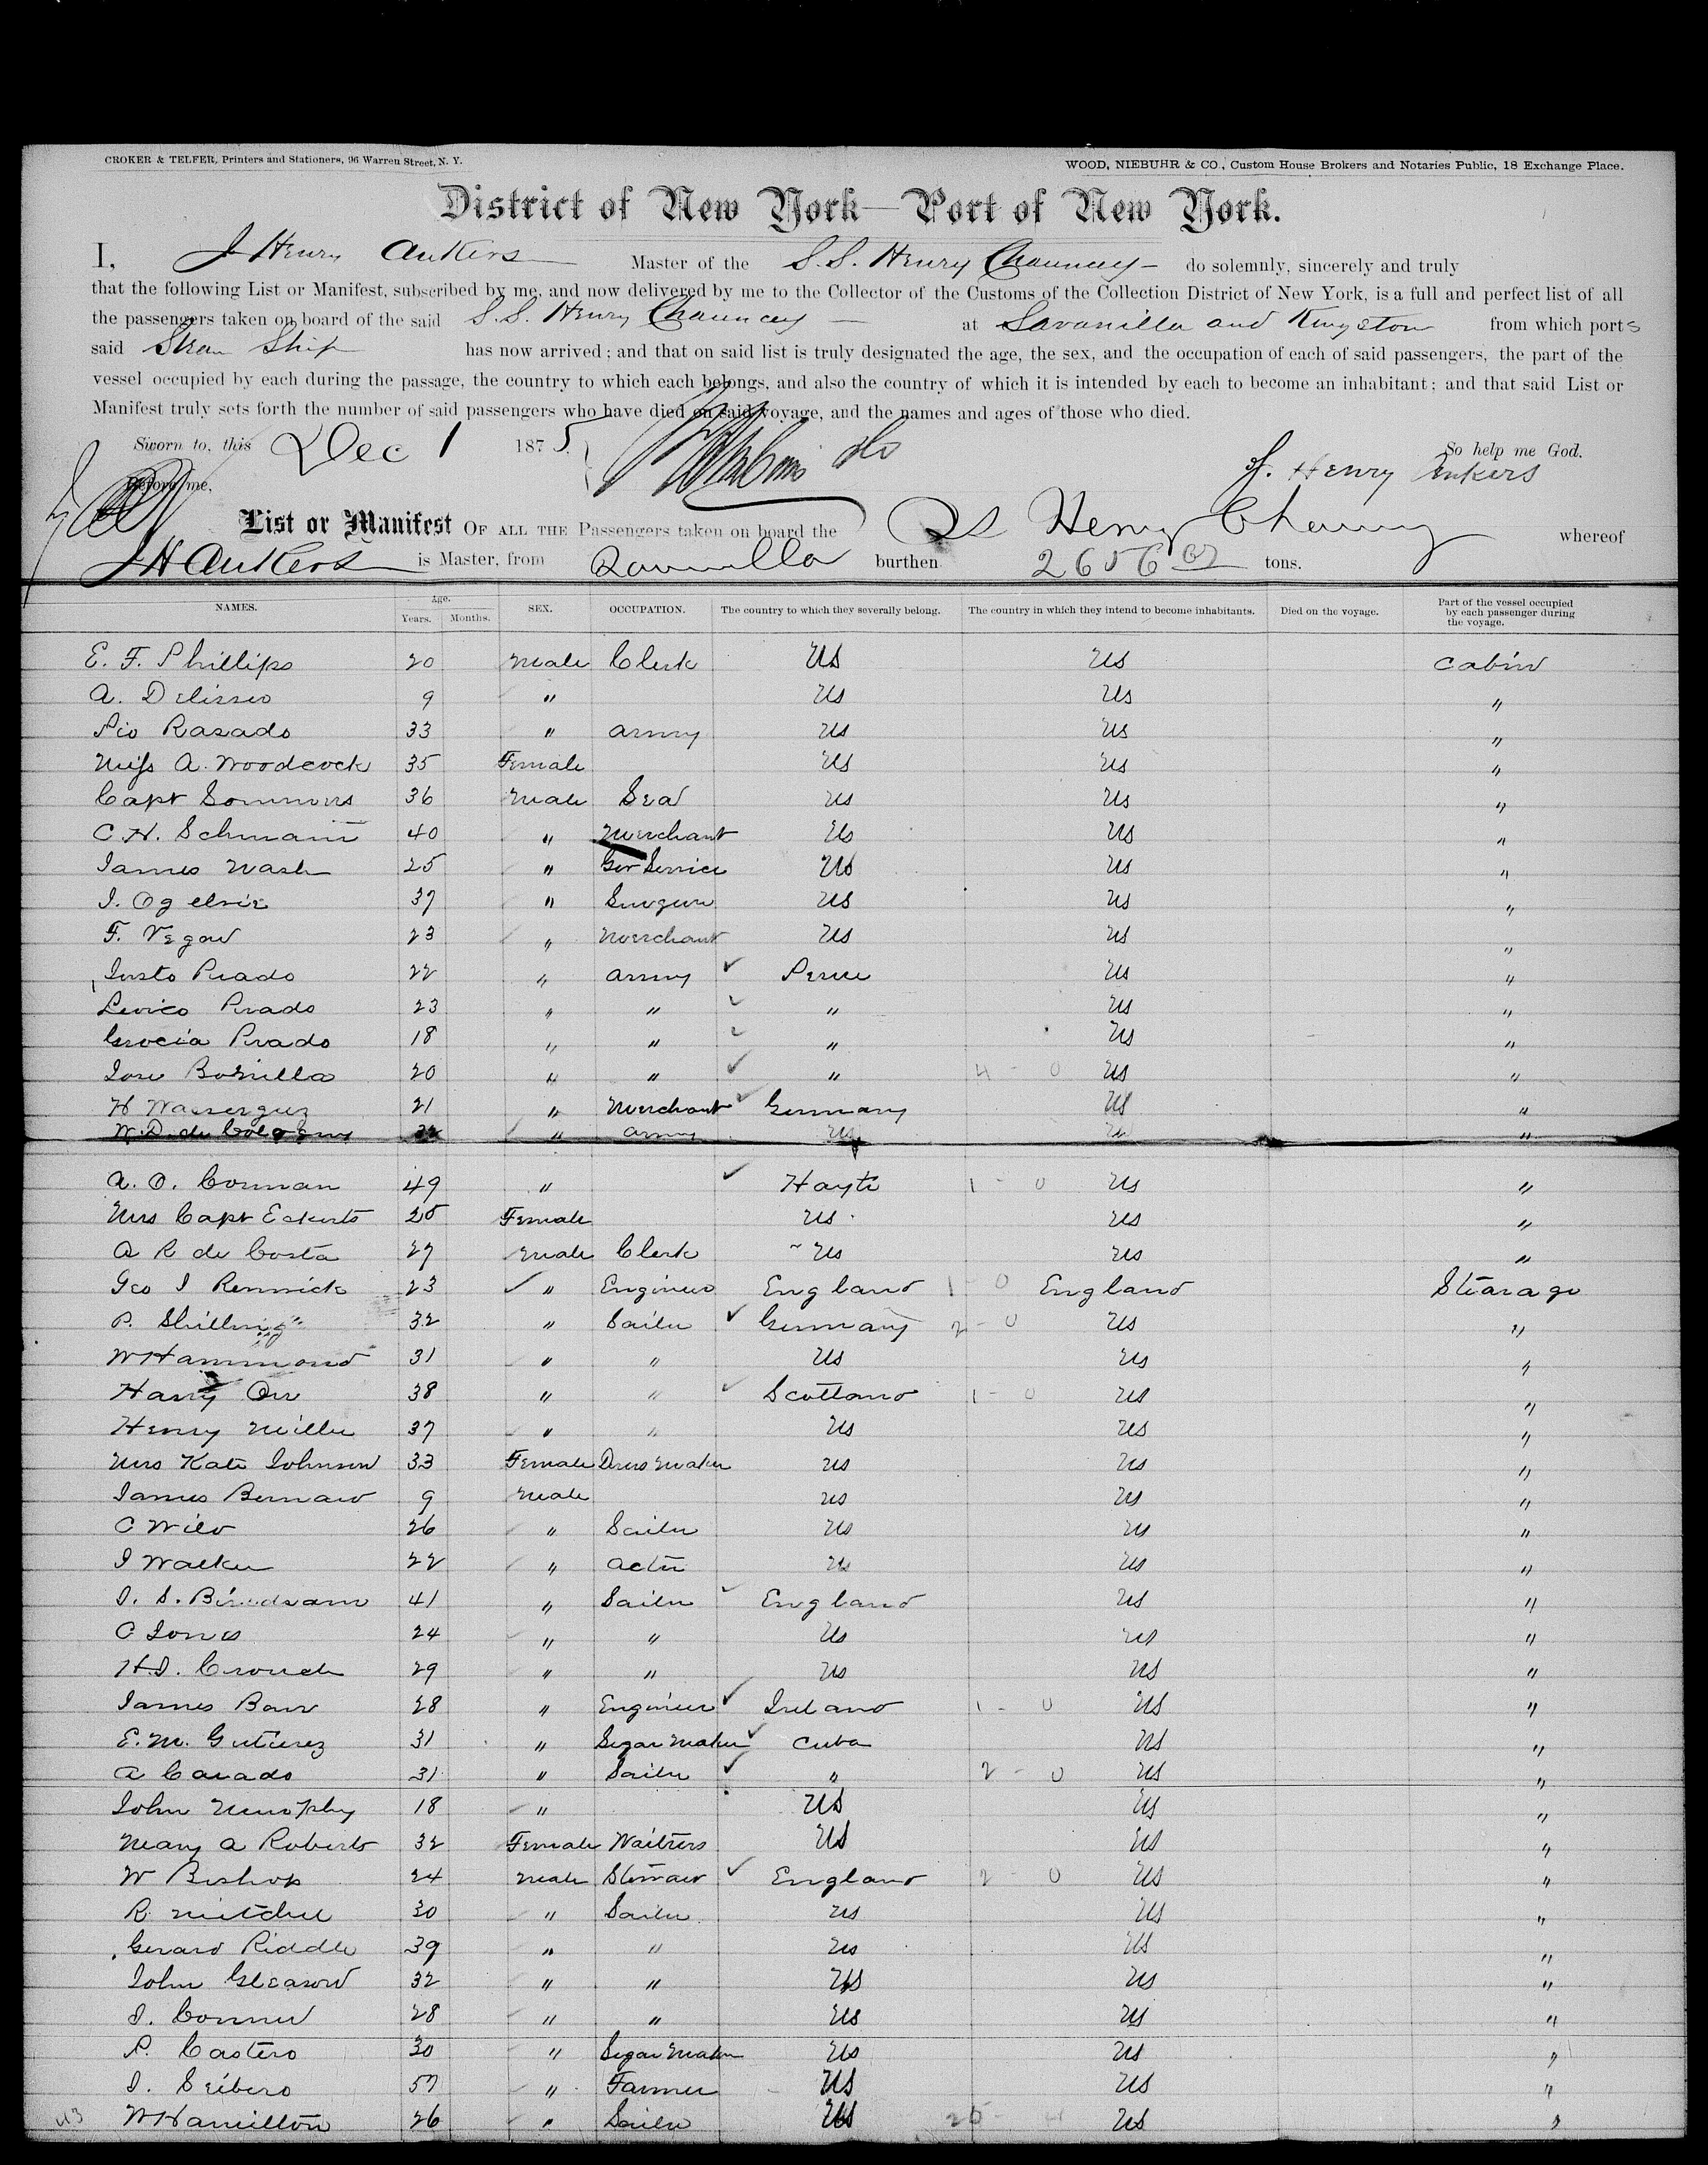 CROKER & TELFER, Printers and Stationers, 96 Warren Street, N. Y. WOOD, NIEBUHR & CO., Custom House Brokers and Notaries Public, 18 Exchange Place.
District of New York—Port of New York.
I, J Henry Ankers Master of the S.S. Henry Chauncey do solemnly, sincerely and truly
that the following List or Manifest, subscribed by me, and now delivered by me to the Collector of the Customs of the Collection District of New York, is a full and perfect list of all
the passengers taken on board of the said S.S. Henry Chauncey at Savanilla and Kingston from which ports
said Steam Ship has now arrived; and that on said list is truly designated the age, the sex, and the occupation of each of said passengers, the part of the
vessel occupied by each during the passage, the country to which each belongs, and also the country of which it is intended by each to become an inhabitant; and that said List or
Manifest truly sets forth the number of said passengers who have died on said voyage, and the names and ages of those who died.
Sworn to, this Dec 1 1875 So help me God,
Before me, J. Henry Ankers
List or Manifest OF ALL THE Passengers taken on board the SS Henry Chauncy whereof
J H Ankers is Master, from Savanilla burthen 2656 tons.
NAMES. Age. Years. Months. SEX. OCCUPATION. The country to which they severally belong. The country in which they intend to become inhabitants. Died on the voyage. Part of the vessel occupied by each passenger during the voyage.
E. F. Phillips 20 male Clerk US US Cabin
A. Delisseo 9 " US US "
Pio Rasado 33 " army US US "
Miss A. Woodcock 35 Female US US "
Capt Sommers 36 male Sea US US "
C. H. Schmann 40 " Merchant US US "
James Nash 25 " Gov Service US US "
J. Ogelvie 37 " Surgeon US US "
F. Vegas 23 " Merchant US US "
Justo Prado 22 " army Peru US "
Prado 23 " " " US "
Grocia Prado 18 " " " US "
Jose Bonilla 20 " " " 4 - 0 US "
H 21 " Merchant Germany US "
W. D. de " army US US "
A. O. Conman 49 " Hayti 1 - 0 US "
Mrs Capt Eckerts 25 Female US US "
A R de Costa 27 male Clerk US US "
Geo J Rennick 23 " Engineer England 1 - 0 England Stearage
P. Shilling 32 " Sailer Germany 2 - 0 US "
W Hammond 31 " " US US "
Harry Orr 38 " " Scotland 1 - 0 US "
Henry Miller 37 " " US US "
Mrs Kate Johnson 33 Female Dress maker US US "
James Bernard 9 male US US "
C Wild 26 " Sailer US US "
J Walker 22 " actor US US "
J. S. 41 " Sailer England US "
C Jones 24 " " US US "
H. J. Crouch 29 " " US US "
James Barr 28 " Engineer Ireland 1 - 0 US "
E. M. Gutierez 31 " Segar Maker Cuba US "
A Casado 31 " Sailer " 2 - 0 US "
John Murophy 18 " US US "
Mary A Roberts 32 Female Waitress US US "
W Bishop 24 male Steward England 2 0 US "
R Mitchell 30 " Sailer US US "
Gerard Riddle 39 " " US US "
John Gleason 32 " " US US "
J. Conner 28 " " US US "
P. Castero 30 " Segar Maker US US "
J. Seibero 57 " Farmer US US "
43 W Hamilton 26 " Sailer US US "